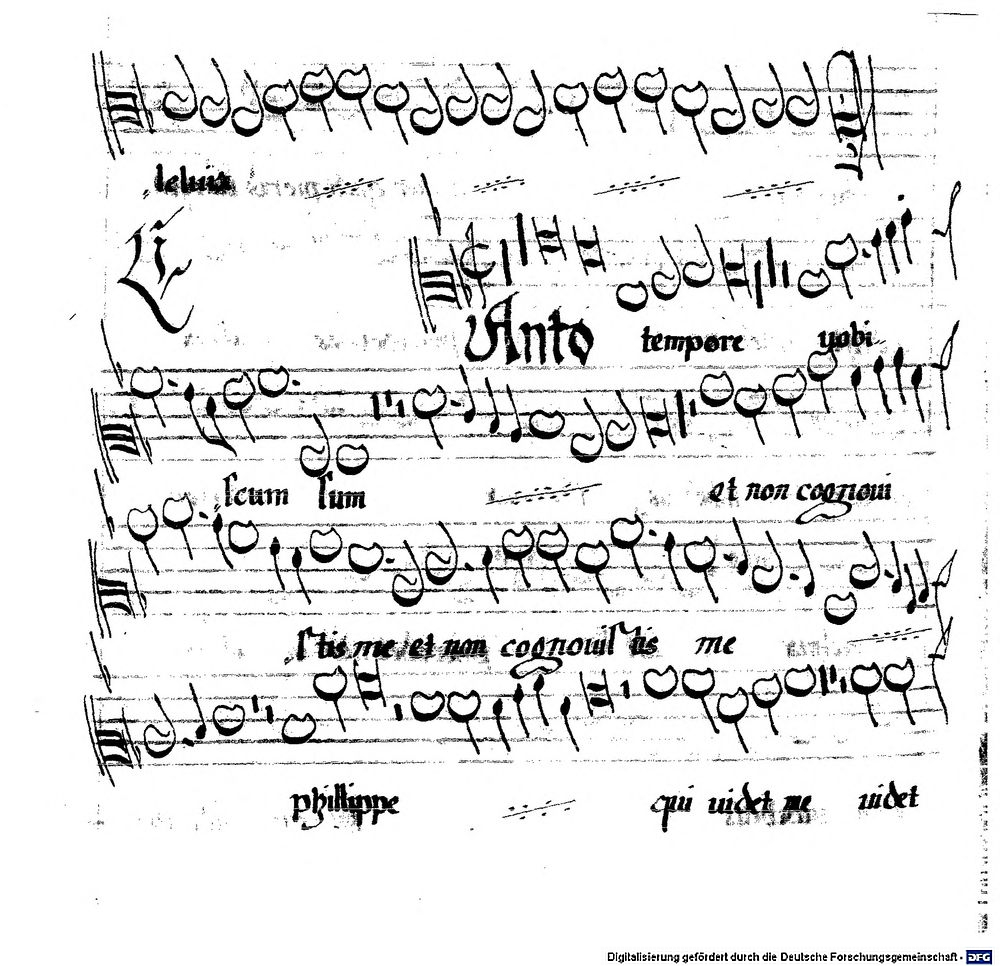 leluia
Anto tempore uobi
scum sum et non cognoui
stis me et non cognouistis me
philippe qui uidet me uidet
Digitalisierung gefördert durch die Deutsche Forschungsgemeinschaft - DFG